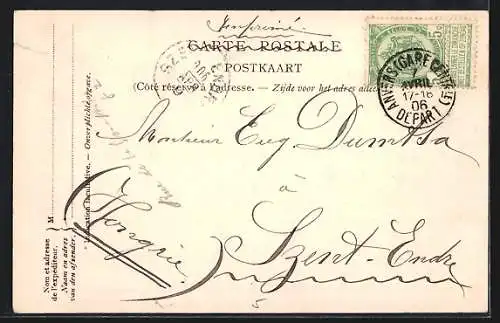 Imprimé.
CARTE POSTALE
POSTKAART
(Côté réservé à l'adresse. — Zijde voor het adres
ANVERS (GARE CENTR.)
7
AVRIL
17-18
06
DÉPART
Monsieur Eug Dumtsa
à
Szent-Endre
(Hongrie)
5
Indication facultative. — Onverplichte opgave.
M
Nom et adresse
de l'expéditeur.
Naam en adres
van den afzender.